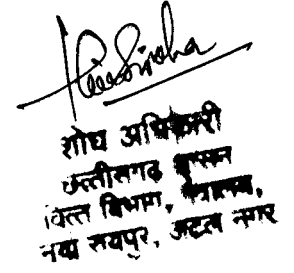 शोध अधिकारी
छत्तीसगढ़ शासन
वित्त विभाग, मंत्रालय,
नवा रायपुर, अटल नगर